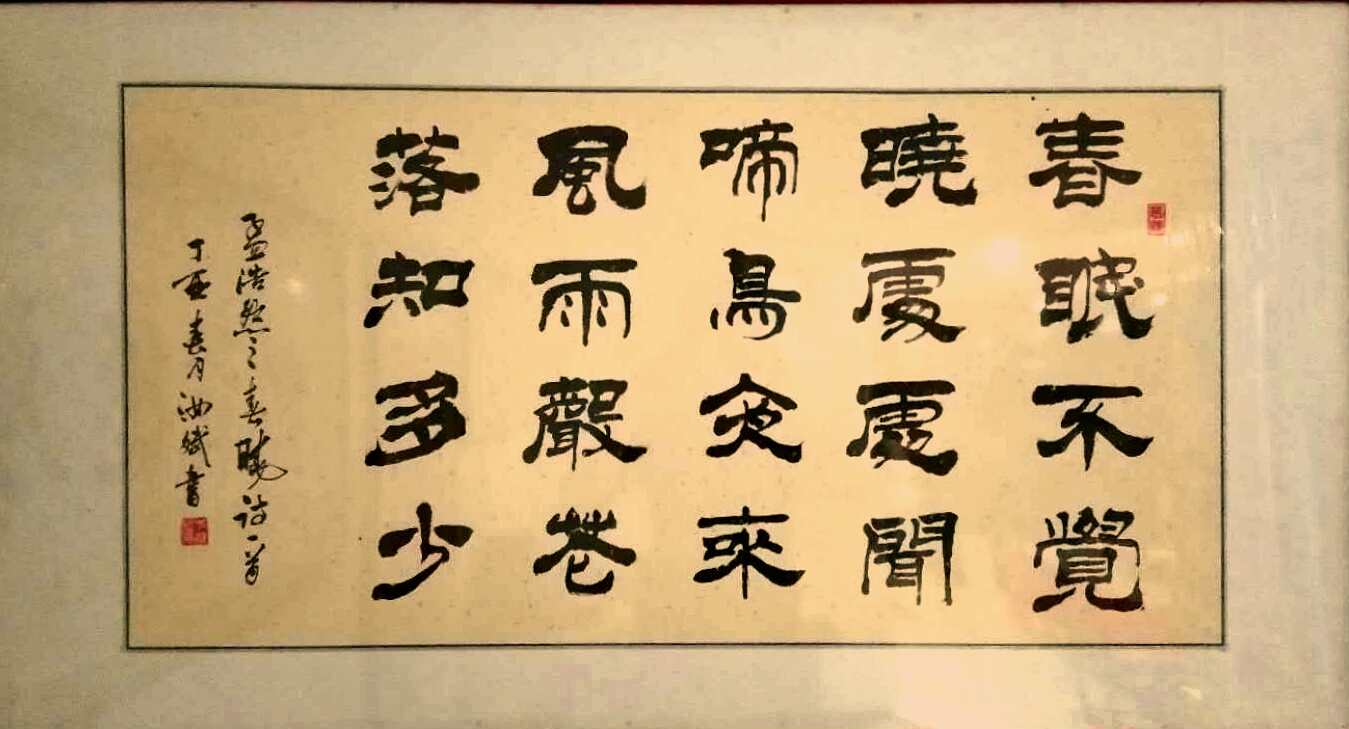 春眠不覺
曉處處聞
啼鳥夜來
風雨聲花
落知多少
孟浩然之春曉詩一首
丁酉春月汝斌書